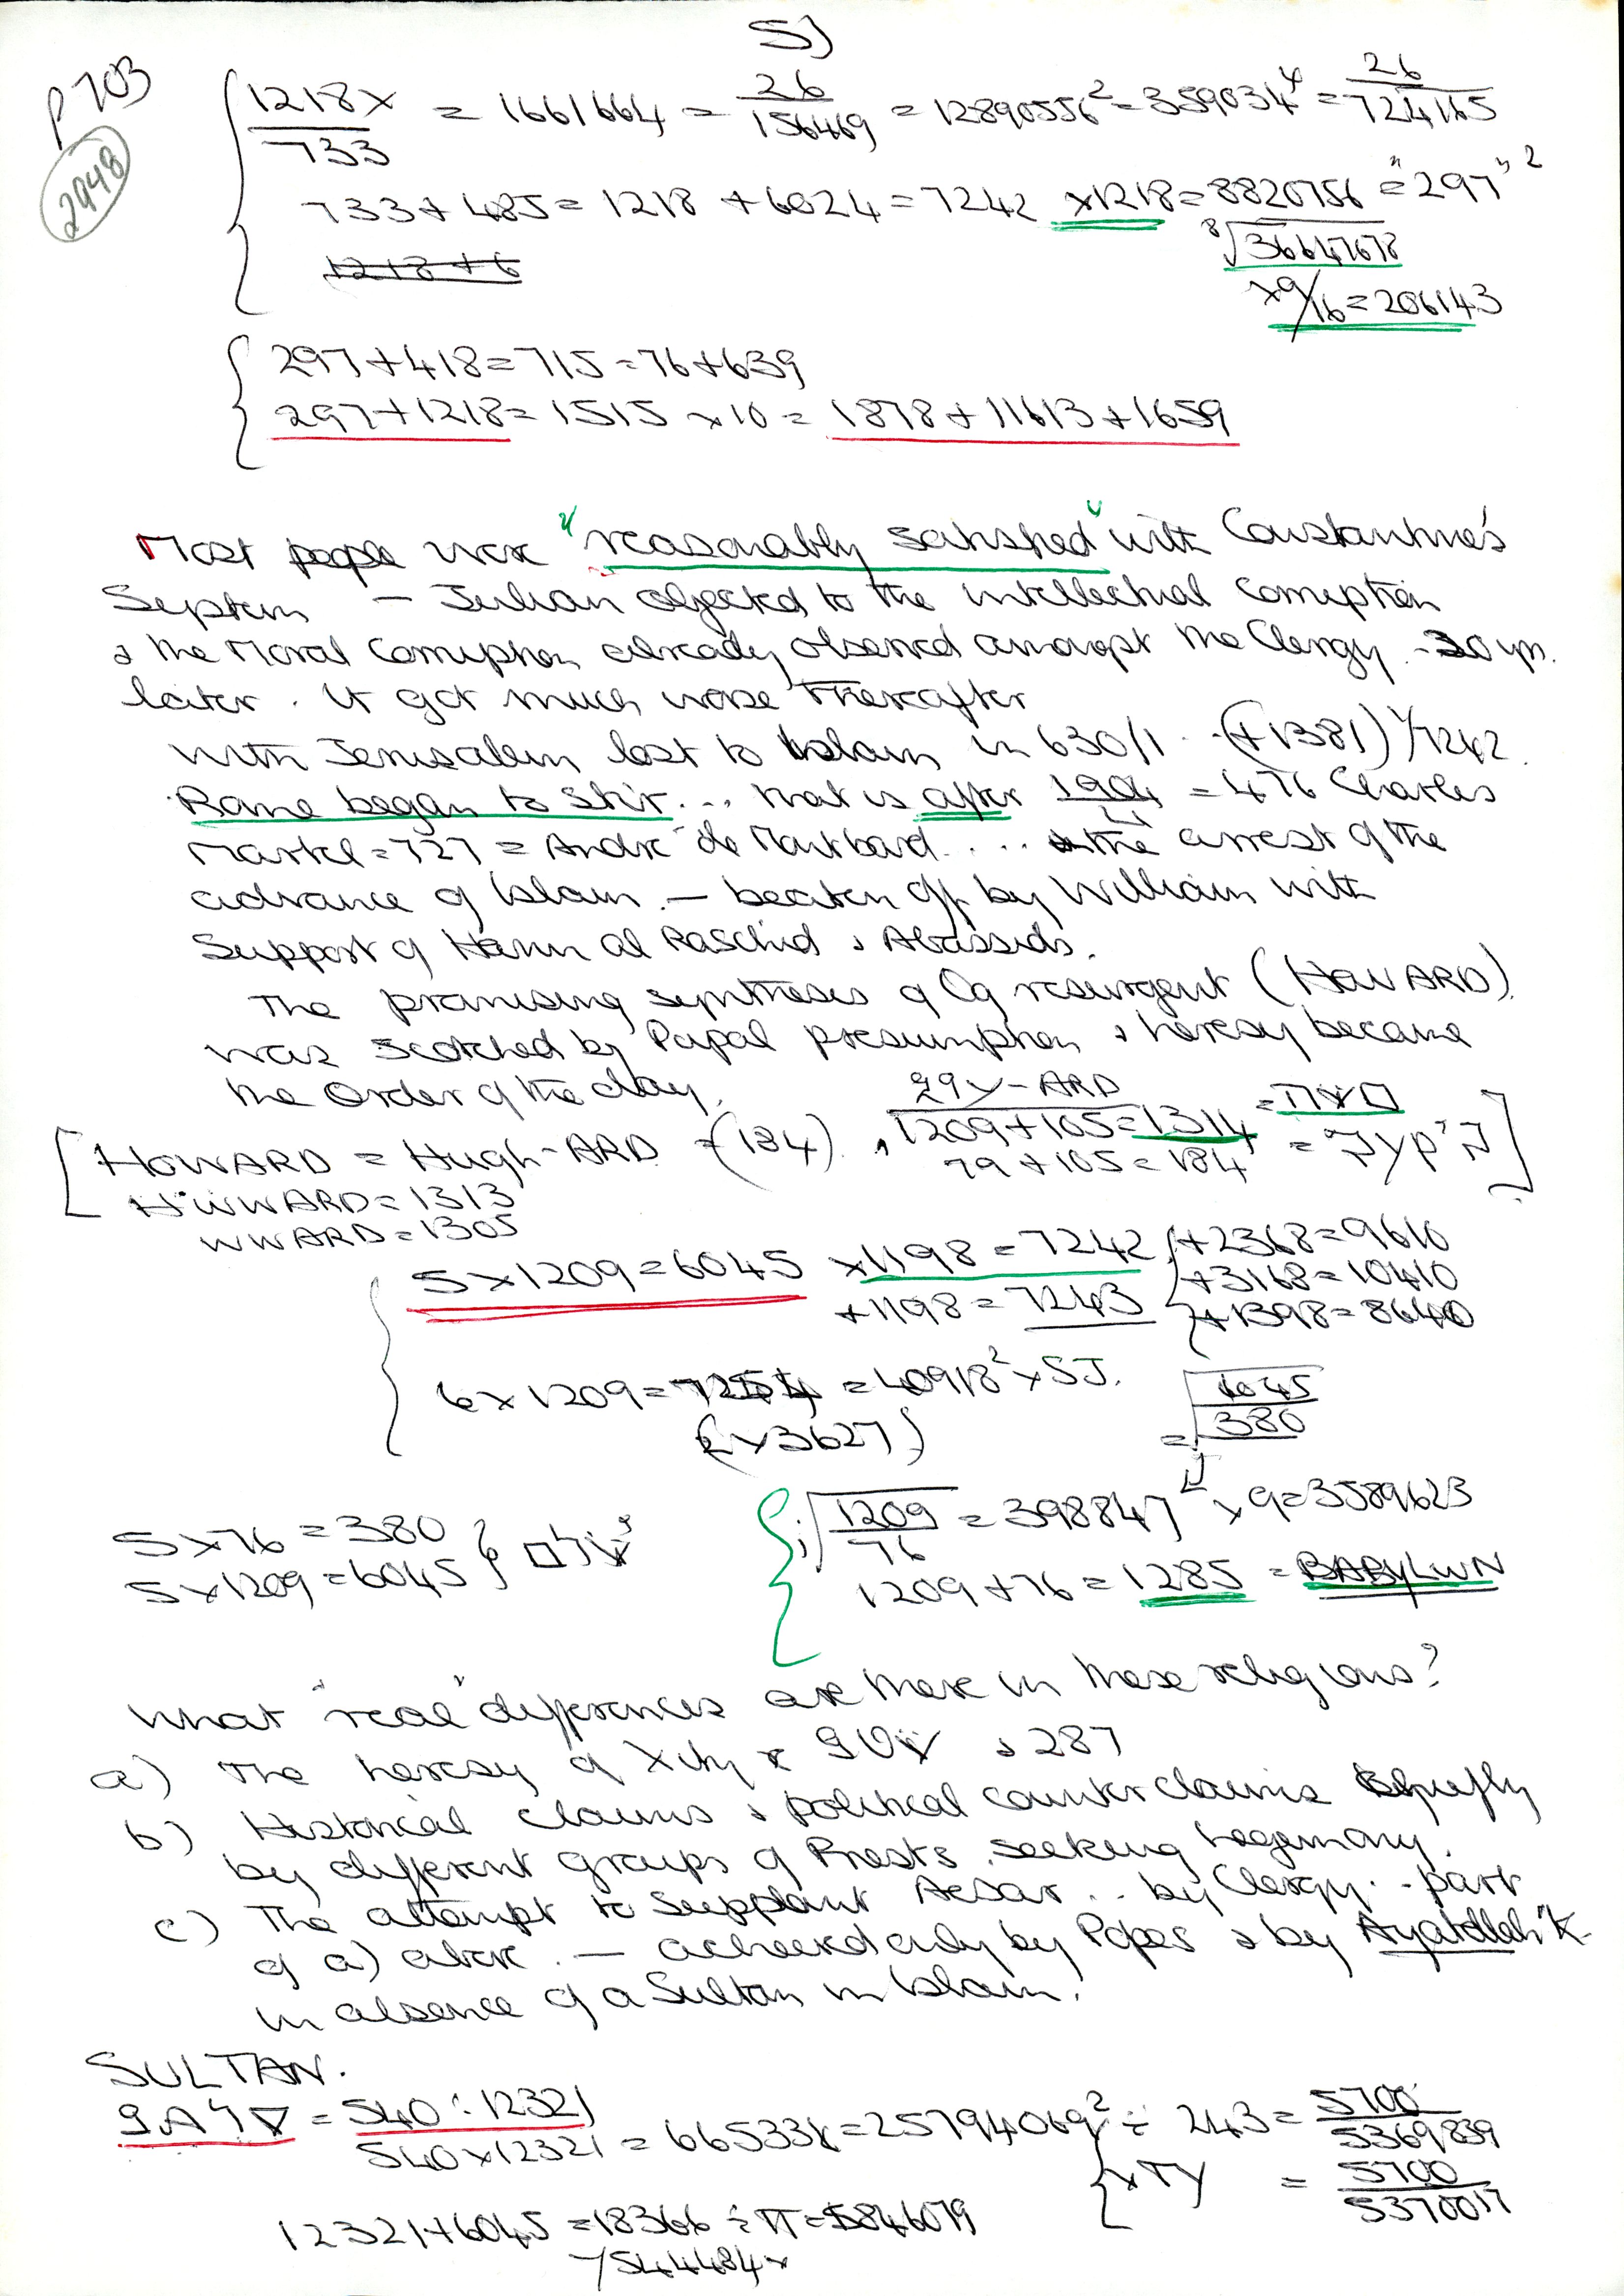 5)
P 703
2948
1218x / 733 = 1661664 = 26 / 156469 = 12890556² = 359034⁴ = 26 / 724165
733 + 485 = 1218 + 6024 = 7242 x1218 = 8820756 = "297"²
1218 + 6
⁸√36647678
x 9/16 = 206143
297 + 418 = 715 = 76 + 639
297 + 1218 = 1515 x 10 = 1878 + 11613 + 1659
Most people were "reasonably satisfied" with Constantine's
System — Julian objected to the intellectual corruption
& the Moral Corruption already observed amongst the Clergy - 30 yrs.
later. It got much worse thereafter
with Jerusalem lost to Islam in 630/1 .. (+1381) 7242.
Rome began to Stir... that is after 1904 = 476 Charles
Martel = 727 = André de Montbard.... the arrest of the
advance of Islam. — beaten off by William with
Support of Harun al Raschid & Abassids.
The promising synthesis of Og resurgent (HOWARD)
was scotched by Papal presumption & heresy became
the Order of the day.
29Y-ARD
1209 + 105 = 1314
79 + 105 = 184
[HOWARD = Hugh-ARD = (184)
HWWARD = 1313
WWARD = 1305
5 x 1209 = 6045 x 1198 = 7242 + 2368 = 9610
+ 1198 = 7243 + 3168 = 10410
+ 1398 = 8640
6 x 1209 = 7254 = 40918² x 5J.
(2 x 3627)
= √6045 / 380
5 x 76 = 380
5 x 1209 = 6045
√1209 / 76 = 398847 x 9 = 3589623
1209 + 76 = 1285 = BABYLWN
What "real" differences are there in these religions?
a) The heresy of Xity & 287
b) Historical claims & political counter claims chiefly
by different groups of Priests seeking hegemony.
c) The attempt to Supplant Aesar .. by Clergy.. part
of a) above. — achieved only by Popes & by Ayatollah K.
in absence of a Sultan in Islam.
SULTAN.
= 540 : 12321
540 x 12321 = 665334 = 25794069² ÷ 243 = 5700 / 5369839
x TY = 5700 / 5370017
12321 + 6045 = 18366 ÷ π = 5846079
7544484x